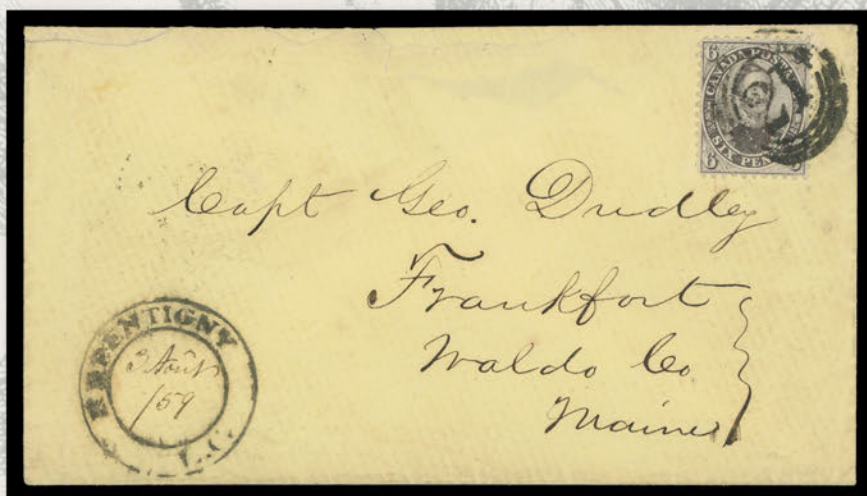 6
CANADA POSTA
SIX PEN
6
Capt Geo. Dudley
Frankfort
Waldo Co
Maine
REPENTIGNY
3 Août
/59
L.C.